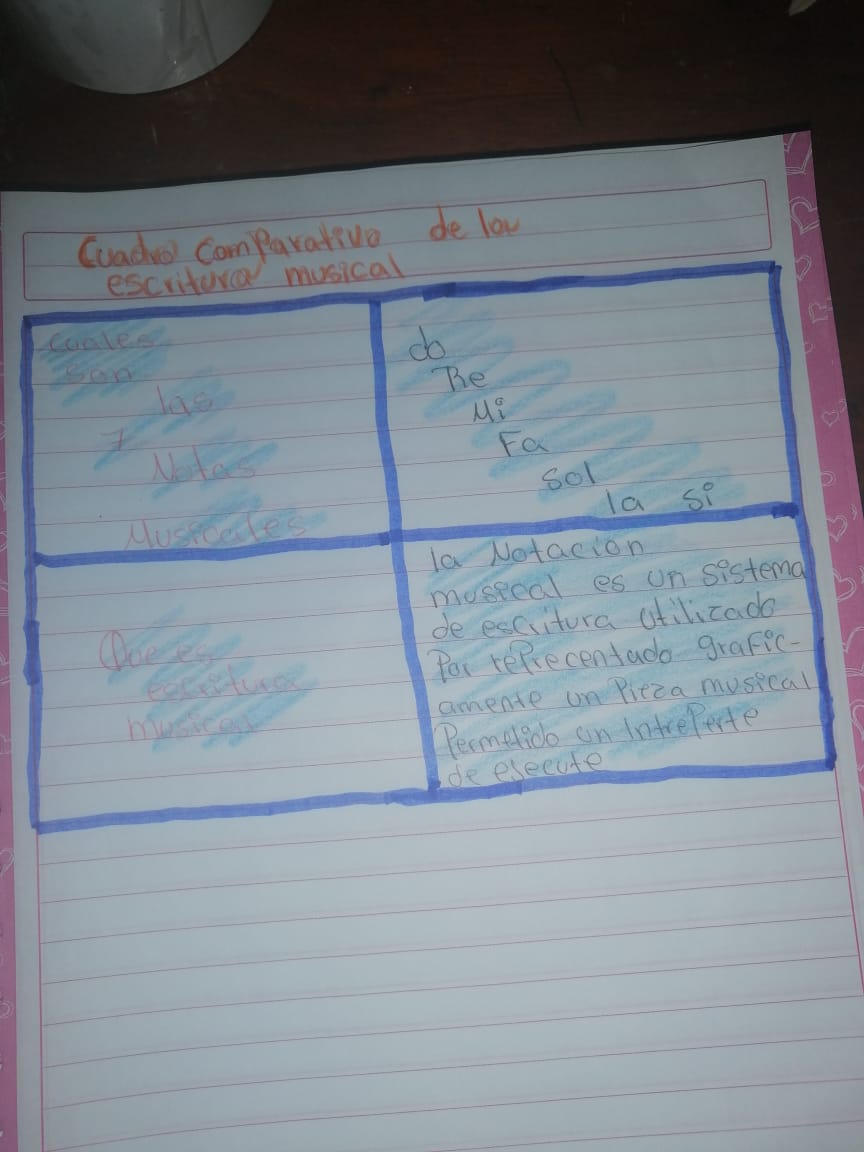 Cuadro comparativo de la
escritura musical
cuales
son
las
7
Notas
Musicales
do
Re
Mi
Fa
Sol
la si
Que es
escritura
musical
la Notacion
musecal es un sistema
de escritura utilizado
Por reprecentado grafic-
amente un Pieza musical
Permetido un Intreperte
de esecute